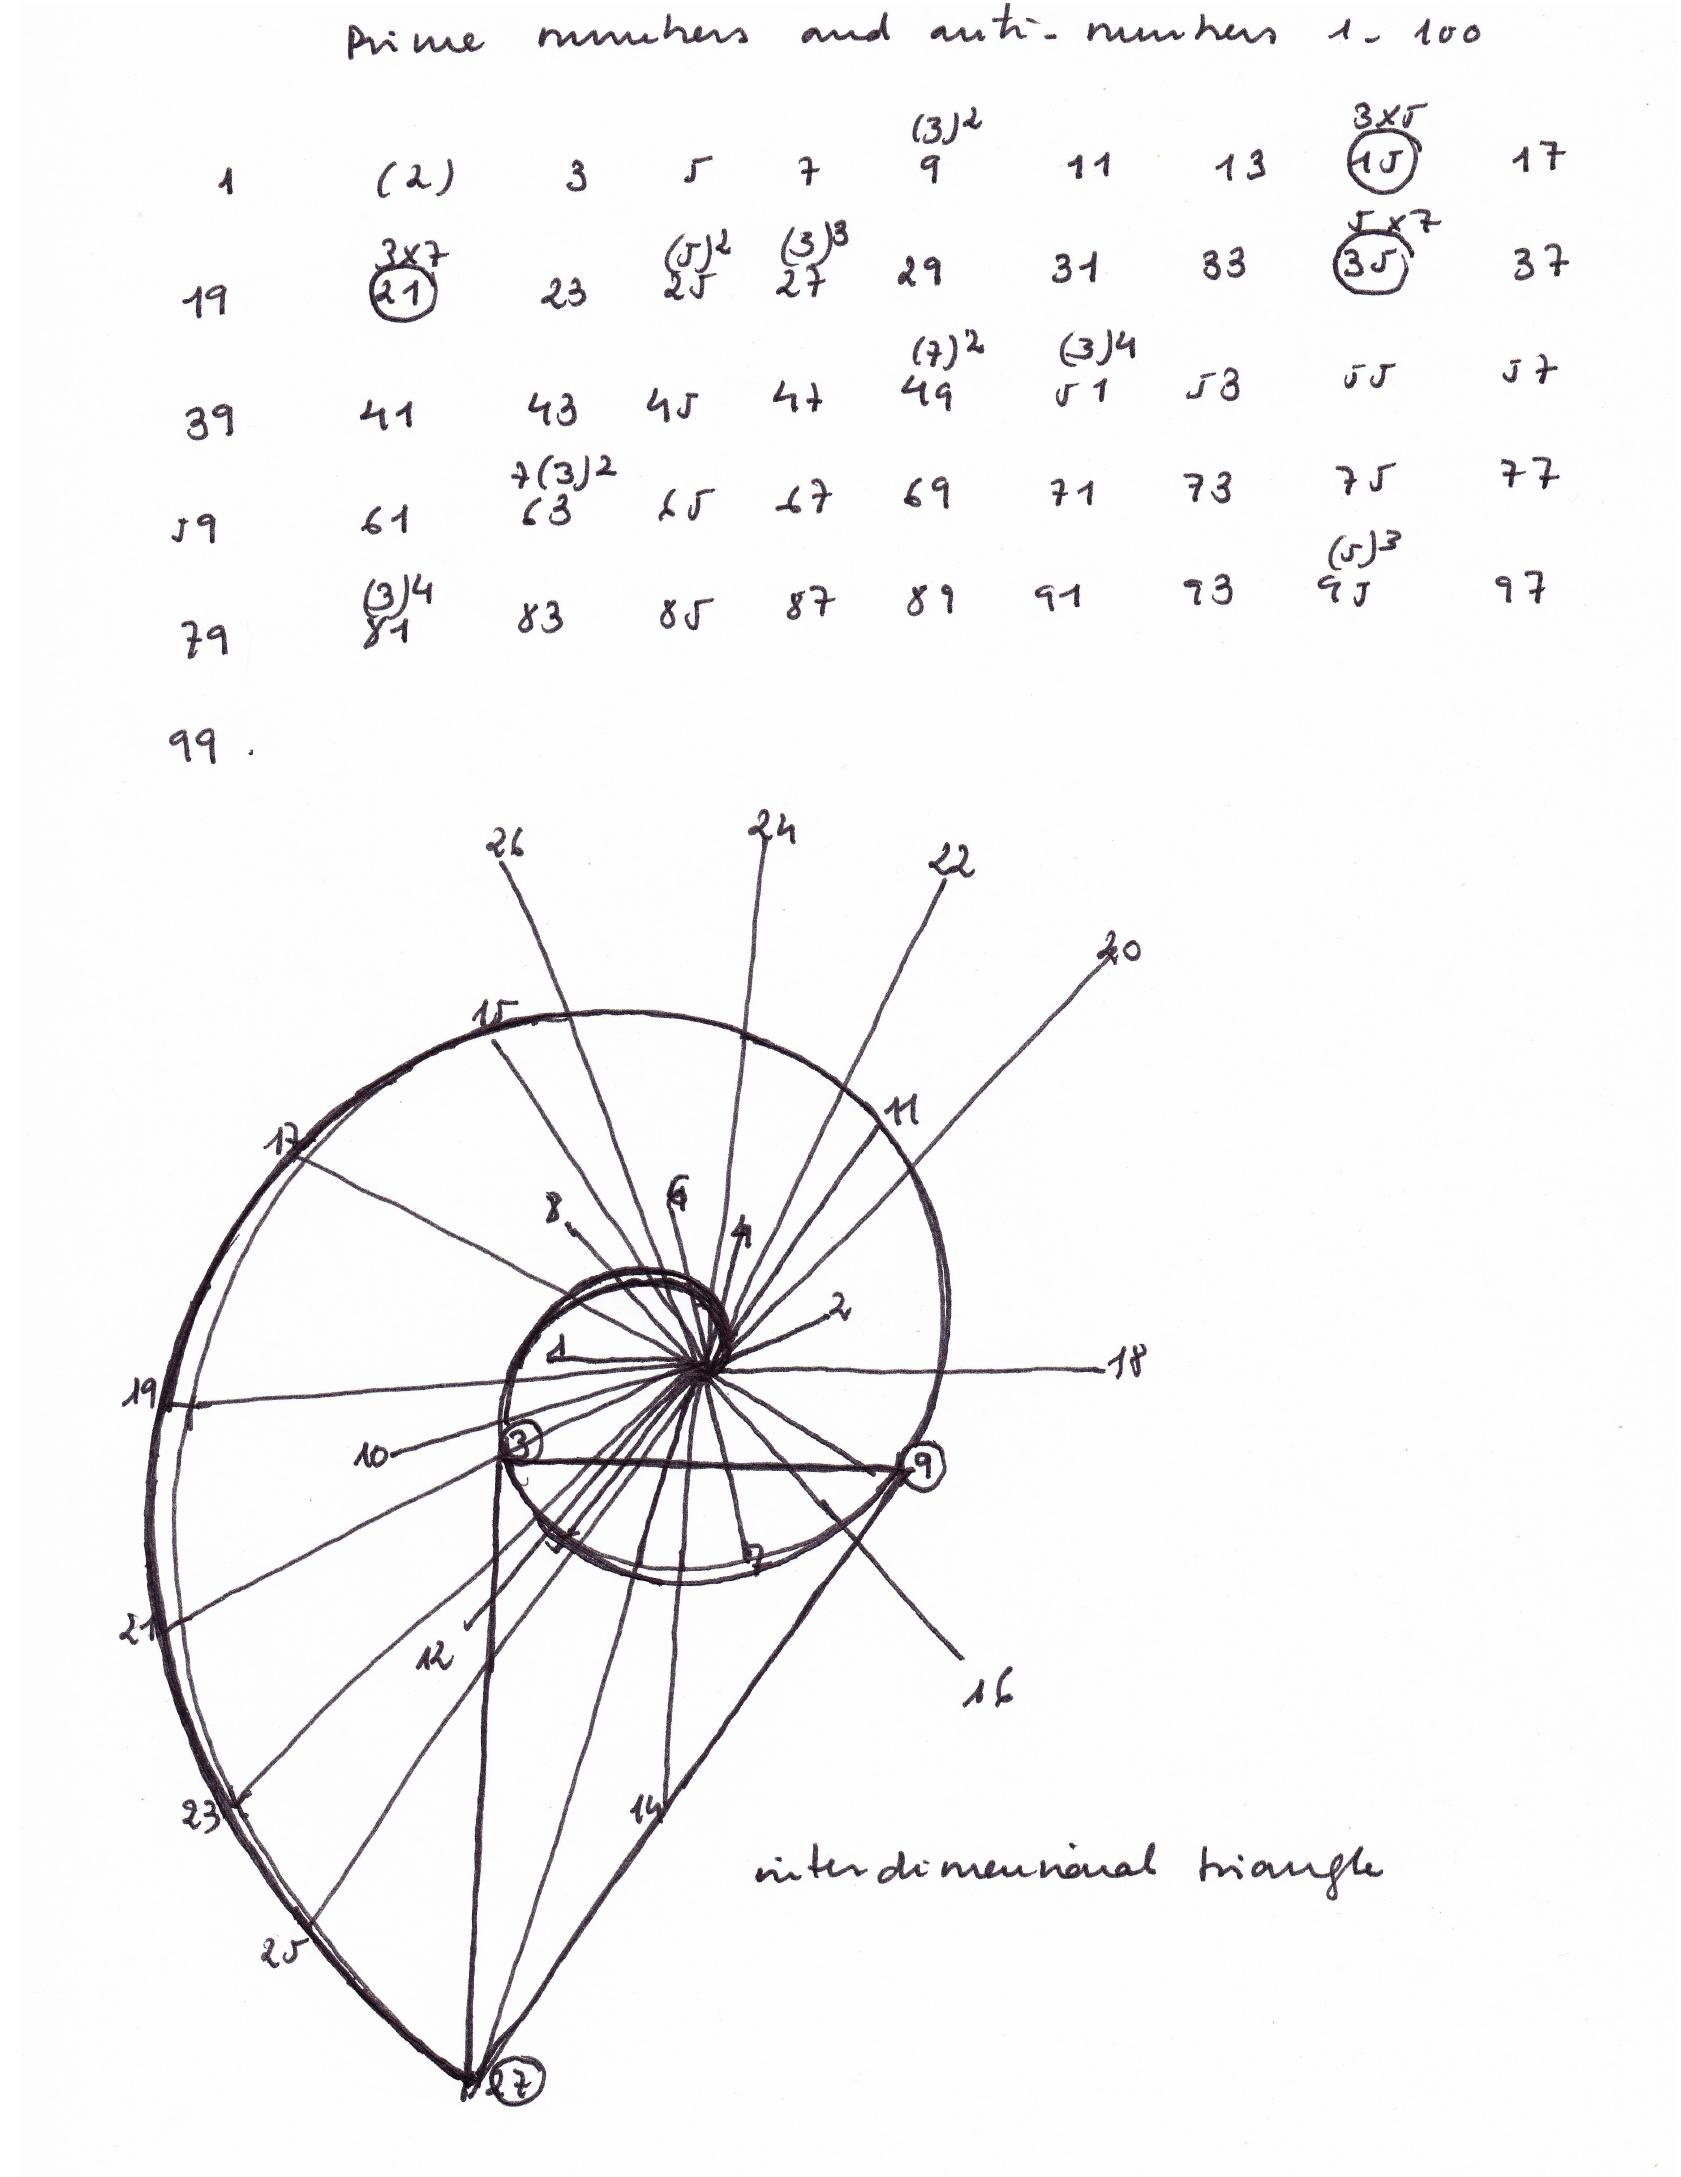 Prime numbers and anti-numbers 1-100
(3)2 3x5
1 (2) 3 5 7 9 11 13 15 17
3x7 (5)2 (3)3 5x7
19 21 23 25 27 29 31 33 35 37
(7)2 (3)4
39 41 43 45 47 49 51 53 55 57
7(3)2
59 61 63 65 67 69 71 73 75 77
(3)4 (5)3
79 81 83 85 87 89 91 93 95 97
99.
26 24 22
20
15
17 11
8 6 4
2
1 18
19
10 3 9
5 7
21 12
16
23 14
interdimensional triangle
25
27